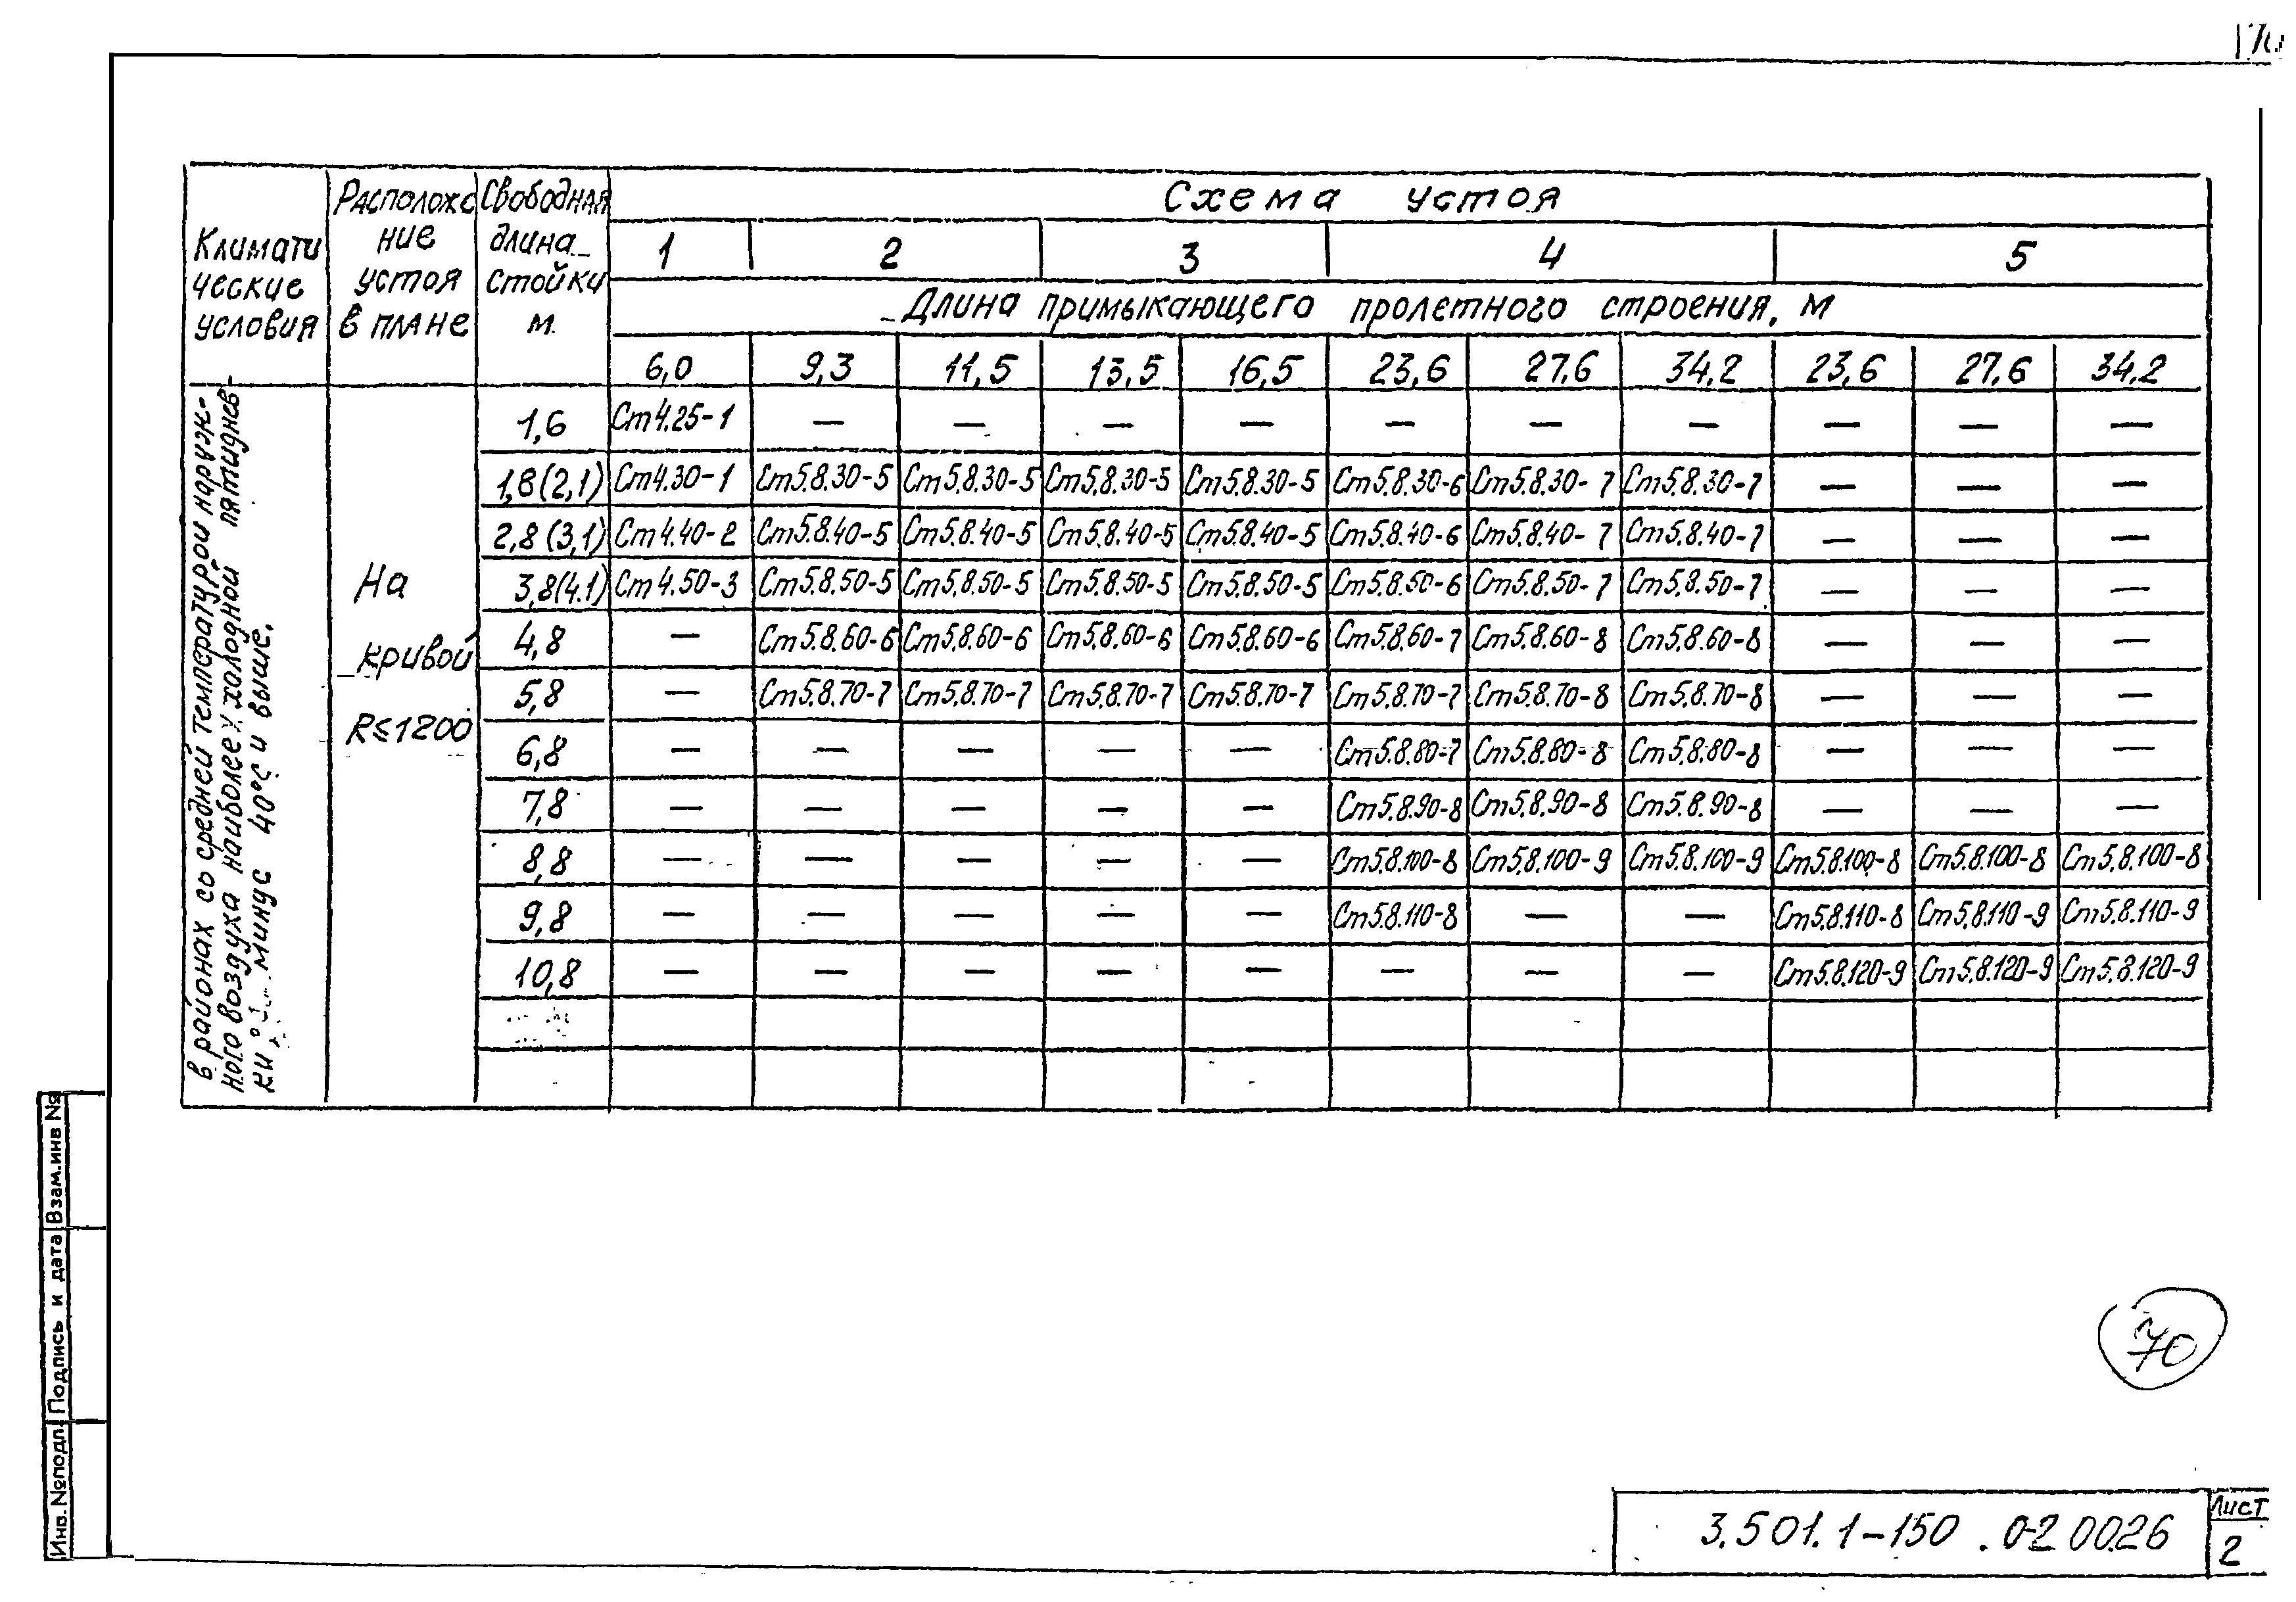 Схема устоя
Климати
ческие
условия
Расположе
ние
устоя
в плане
Свободная
длина
стойки
м.
1 2 3 4 5
Длина примыкающего пролетного строения, м
6,0 9,3 11,5 13,5 16,5 23,6 27,6 34,2 23,6 27,6 34,2
в районах со средней температурой наруж-
ного воздуха наиболее холодной пятиднев-
ки минус 40°С и выше.
На
кривой
R≤1200
1,6 Ст4.25-1 — — — — — — — — — —
1,8(2,1) Ст4.30-1 Ст5.8.30-5 Ст5.8.30-5 Ст5.8.30-5 Ст5.8.30-5 Ст5.8.30-6 Ст5.8.30-7 Ст5.8.30-7 — — —
2,8(3,1) Ст4.40-2 Ст5.8.40-5 Ст5.8.40-5 Ст5.8.40-5 Ст5.8.40-5 Ст5.8.40-6 Ст5.8.40-7 Ст5.8.40-7 — — —
3,8(4.1) Ст4.50-3 Ст5.8.50-5 Ст5.8.50-5 Ст5.8.50-5 Ст5.8.50-5 Ст5.8.50-6 Ст5.8.50-7 Ст5.8.50-7 — — —
4,8 — Ст5.8.60-6 Ст5.8.60-6 Ст5.8.60-6 Ст5.8.60-6 Ст5.8.60-7 Ст5.8.60-8 Ст5.8.60-8 — — —
5,8 — Ст5.8.70-7 Ст5.8.70-7 Ст5.8.70-7 Ст5.8.70-7 Ст5.8.70-7 Ст5.8.70-8 Ст5.8.70-8 — — —
6,8 — — — — — Ст5.8.80-7 Ст5.8.80-8 Ст5.8.80-8 — — —
7,8 — — — — — Ст5.8.90-8 Ст5.8.90-8 Ст5.8.90-8 — — —
8,8 — — — — — Ст5.8.100-8 Ст5.8.100-9 Ст5.8.100-9 Ст5.8.100-8 Ст5.8.100-8 Ст5.8.100-8
9,8 — — — — — Ст5.8.110-8 — — Ст5.8.110-8 Ст5.8.110-9 Ст5.8.110-9
10,8 — — — — — — — — Ст5.8.120-9 Ст5.8.120-9 Ст5.8.120-9
Взам.инв №
Подпись и дата
Инв.№подл.
70
3.501.1-150.0-2 0026
Лист
2